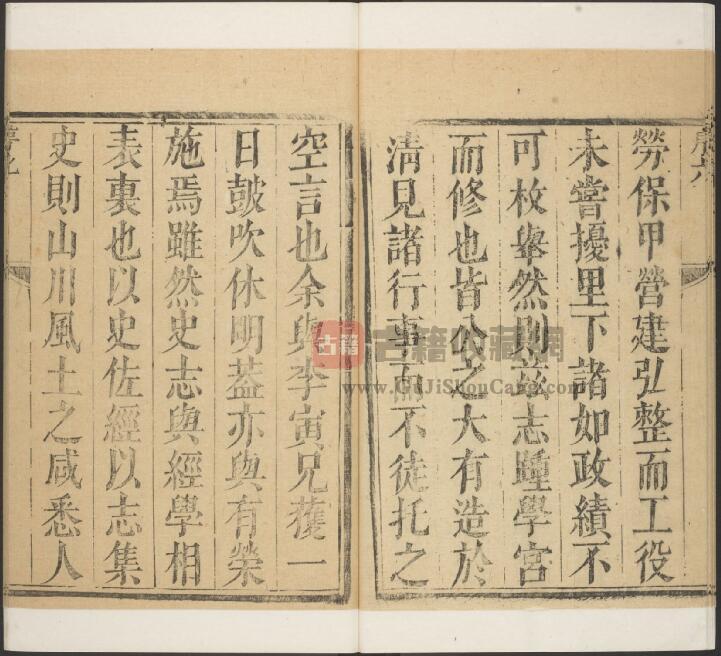 勞保甲營建弘整而工役
未嘗擾里下諸如政績不
可枚舉然則茲志踵學宮
而修也皆公之大有造於
清見諸行事而不徒托之
空言也余與李寅兄獲一
日鼓吹休明葢亦與有榮
施焉雖然史志與經學相
表裏也以史佐經以志集
史則山川風土之咸悉人
古籍 古籍收藏網
www.GuJiShouCang.com